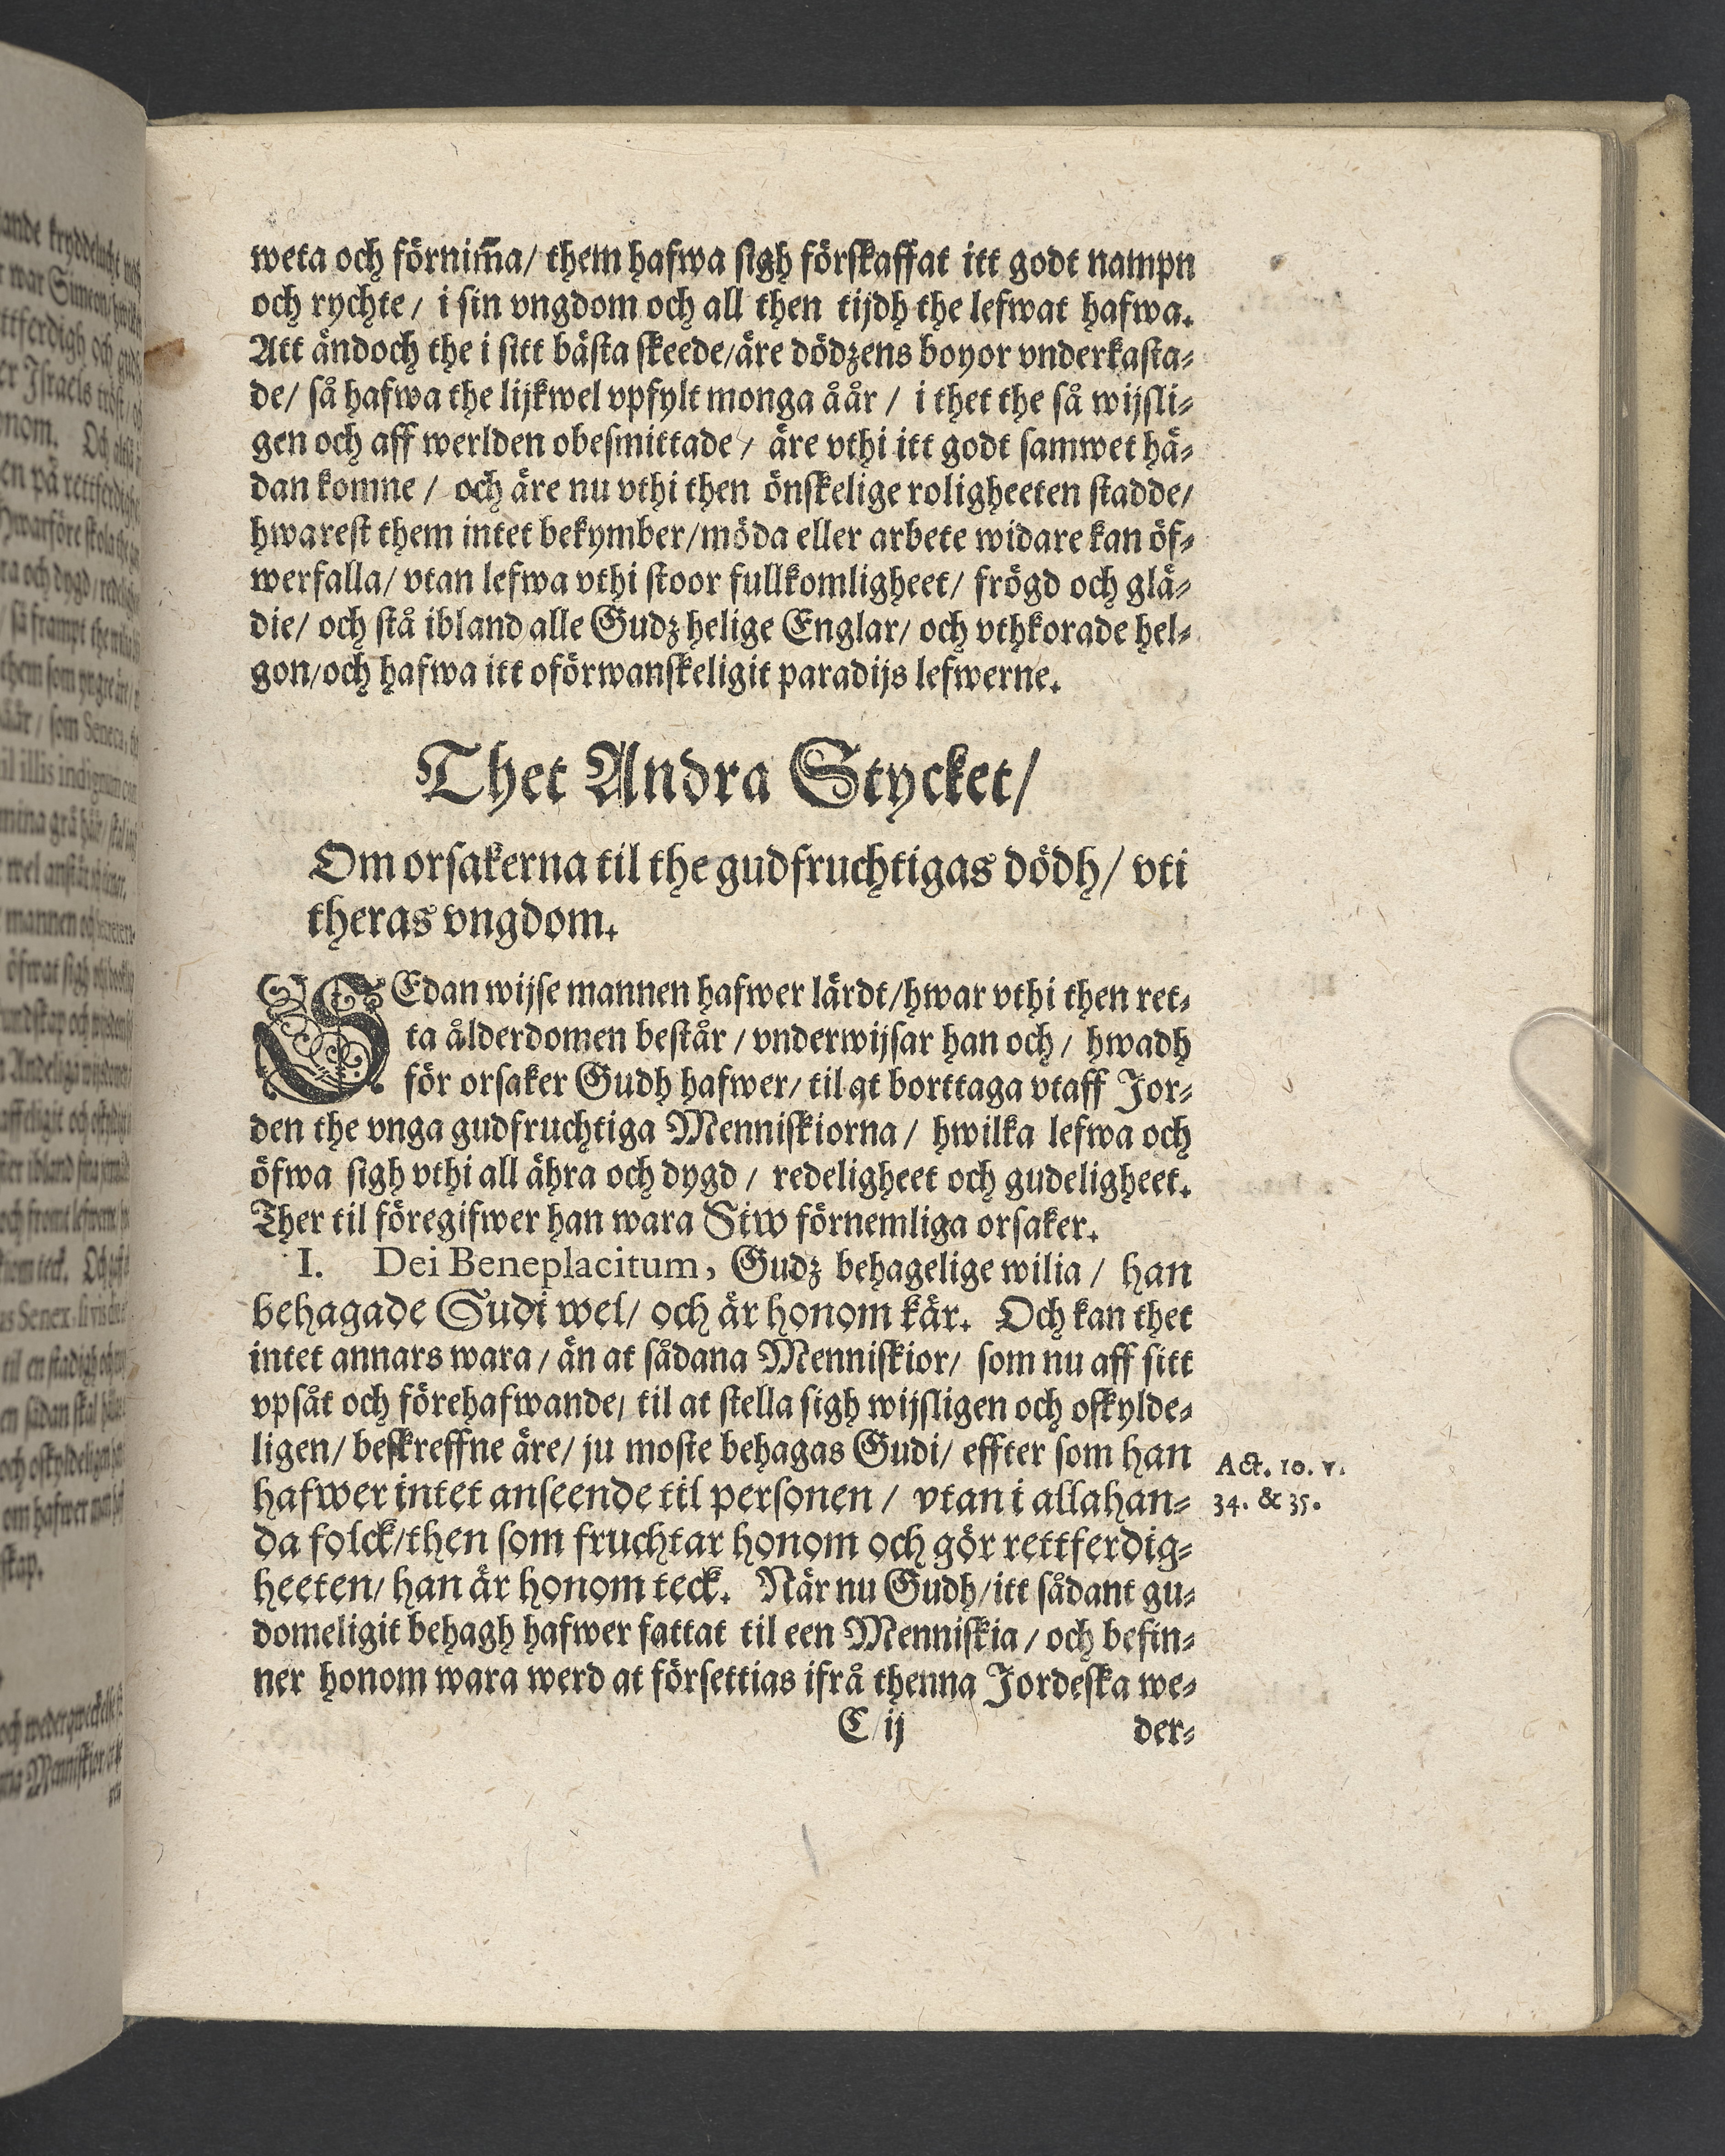 weta och förnim̃a/ them hafwa sigh förskaffat itt godt nampn
och rychte/ i sin vngdom och all then tijdh the lefwat hafwa.
Att ändoch the i sitt bästa skeede/äre dödzens boyor vnderkasta⸗
de/ så hafwa the lijkwel vpfylt monga åår / i thet the så wijsli⸗
gen och aff werlden obesmittade / äre vthi itt godt samwet hä⸗
dan komne / och äre nu vthi then önskelige roligheeten stadde/
hwarest them intet bekymber/möda eller arbete widare kan öf⸗
werfalla/ vtan lefwa vthi stoor fullkomligheet/ frögd och glä⸗
die/ och stå ibland alle Gudz helige Englar/ och vthkorade hel⸗
gon/och hafwa itt oförwanskeligit paradijs lefwerne.
Thet Andra Stycket/
Om orsakerna til the gudfruchtigas dödh/ vti
theras vngdom.
SEdan wijse mannen hafwer lärdt/hwar vthi then ret⸗
ta ålderdomen består / vnderwijsar han och / hwadh
för orsaker Gudh hafwer/ til at borttaga vtaff Jor⸗
den the vnga gudfruchtiga Menniskiorna / hwilka lefwa och
öfwa sigh vthi all ähra och dygd / redeligheet och gudeligheet.
Ther til föregifwer han wara Siw förnemliga orsaker.
I. Dei Beneplacitum, Gudz behagelige wilia / han
behagade Gudi wel/ och är honom kär. Och kan thet
intet annars wara / än at sådana Menniskior/ som nu aff sitt
vpsåt och förehafwande/ til at stella sigh wijsligen och oskylde⸗
ligen/ beskreffne äre/ ju moste behagas Gudi/ effter som han
hafwer intet anseende til personen / vtan i allahan⸗
da folck/then som fruchtar honom och gör rettferdig⸗
heeten/ han är honom teck. När nu Gudh/itt sådant gu⸗
domeligit behagh hafwer fattat til een Menniskia / och befin⸗
ner honom wara werd at försettias ifrå thenna Jordeska we⸗
C ij der⸗
Act. 10. v.
34. & 35.